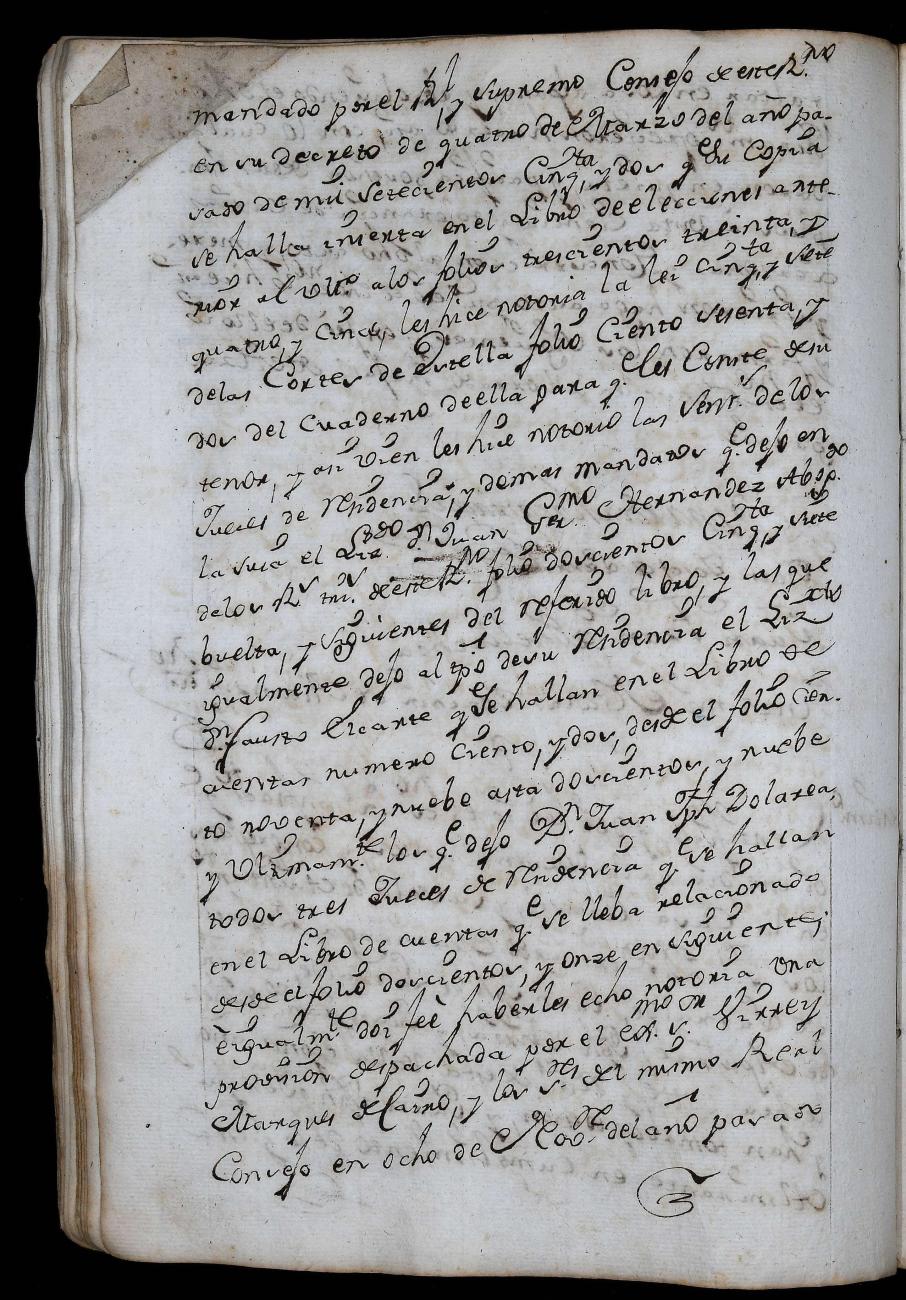 mandado por el Rl, y supremo Consejo de este R.no
en su decreto de quatro de Marzo del año pa-
sado de mil setecientos Cinq.ta y dos q.e su Copia
se halla inserta en el Libro de elecciones ante-
rior al ult.o a los folios trescientos treinta, y
quatro, y Cinco, les hice notoria la lei cinq.ta y siete
delas Cortes de Estella folio Ciento sesenta, y
dos del Cuaderno deella para q.e les Conste desu
tenor, y asi vien les hice notorio las sent.s de los
Jueces de residencia, y demas mandatos q.e dejo en
la suia el Liz.do D.n Juan Ger.mo Hernandez Abog.do
delos Rs tri.s de este R.no folio doscientos Cinq.ta y siete
buelta, y siguientes del referido libro, y las que
igualmente dejo al tpõ desu residencia el Liz.do
D.n Fausto Elcarte q.e se hallan en el Libro de
cuentas numero Ciento, y dos, desde el folio Cien-
to noventa, y nuebe asta doscientos, y nuebe
y Ultimam.te los q.e dejo D.n Juan Jph Dolarea,
todos tres Jueces de residencia q.e se hallan
en el Libro de cuentas q.e se lleba relacionado
desde el folio doscientos, y onze en siguiente;
e igualm.te doi feè haberles echo notoria una
provision despachada por el ex.mo s.or Virrey
Marques del Cairo, y los s.res del mismo Real
Consejo en ocho de Nov.re del año pasado